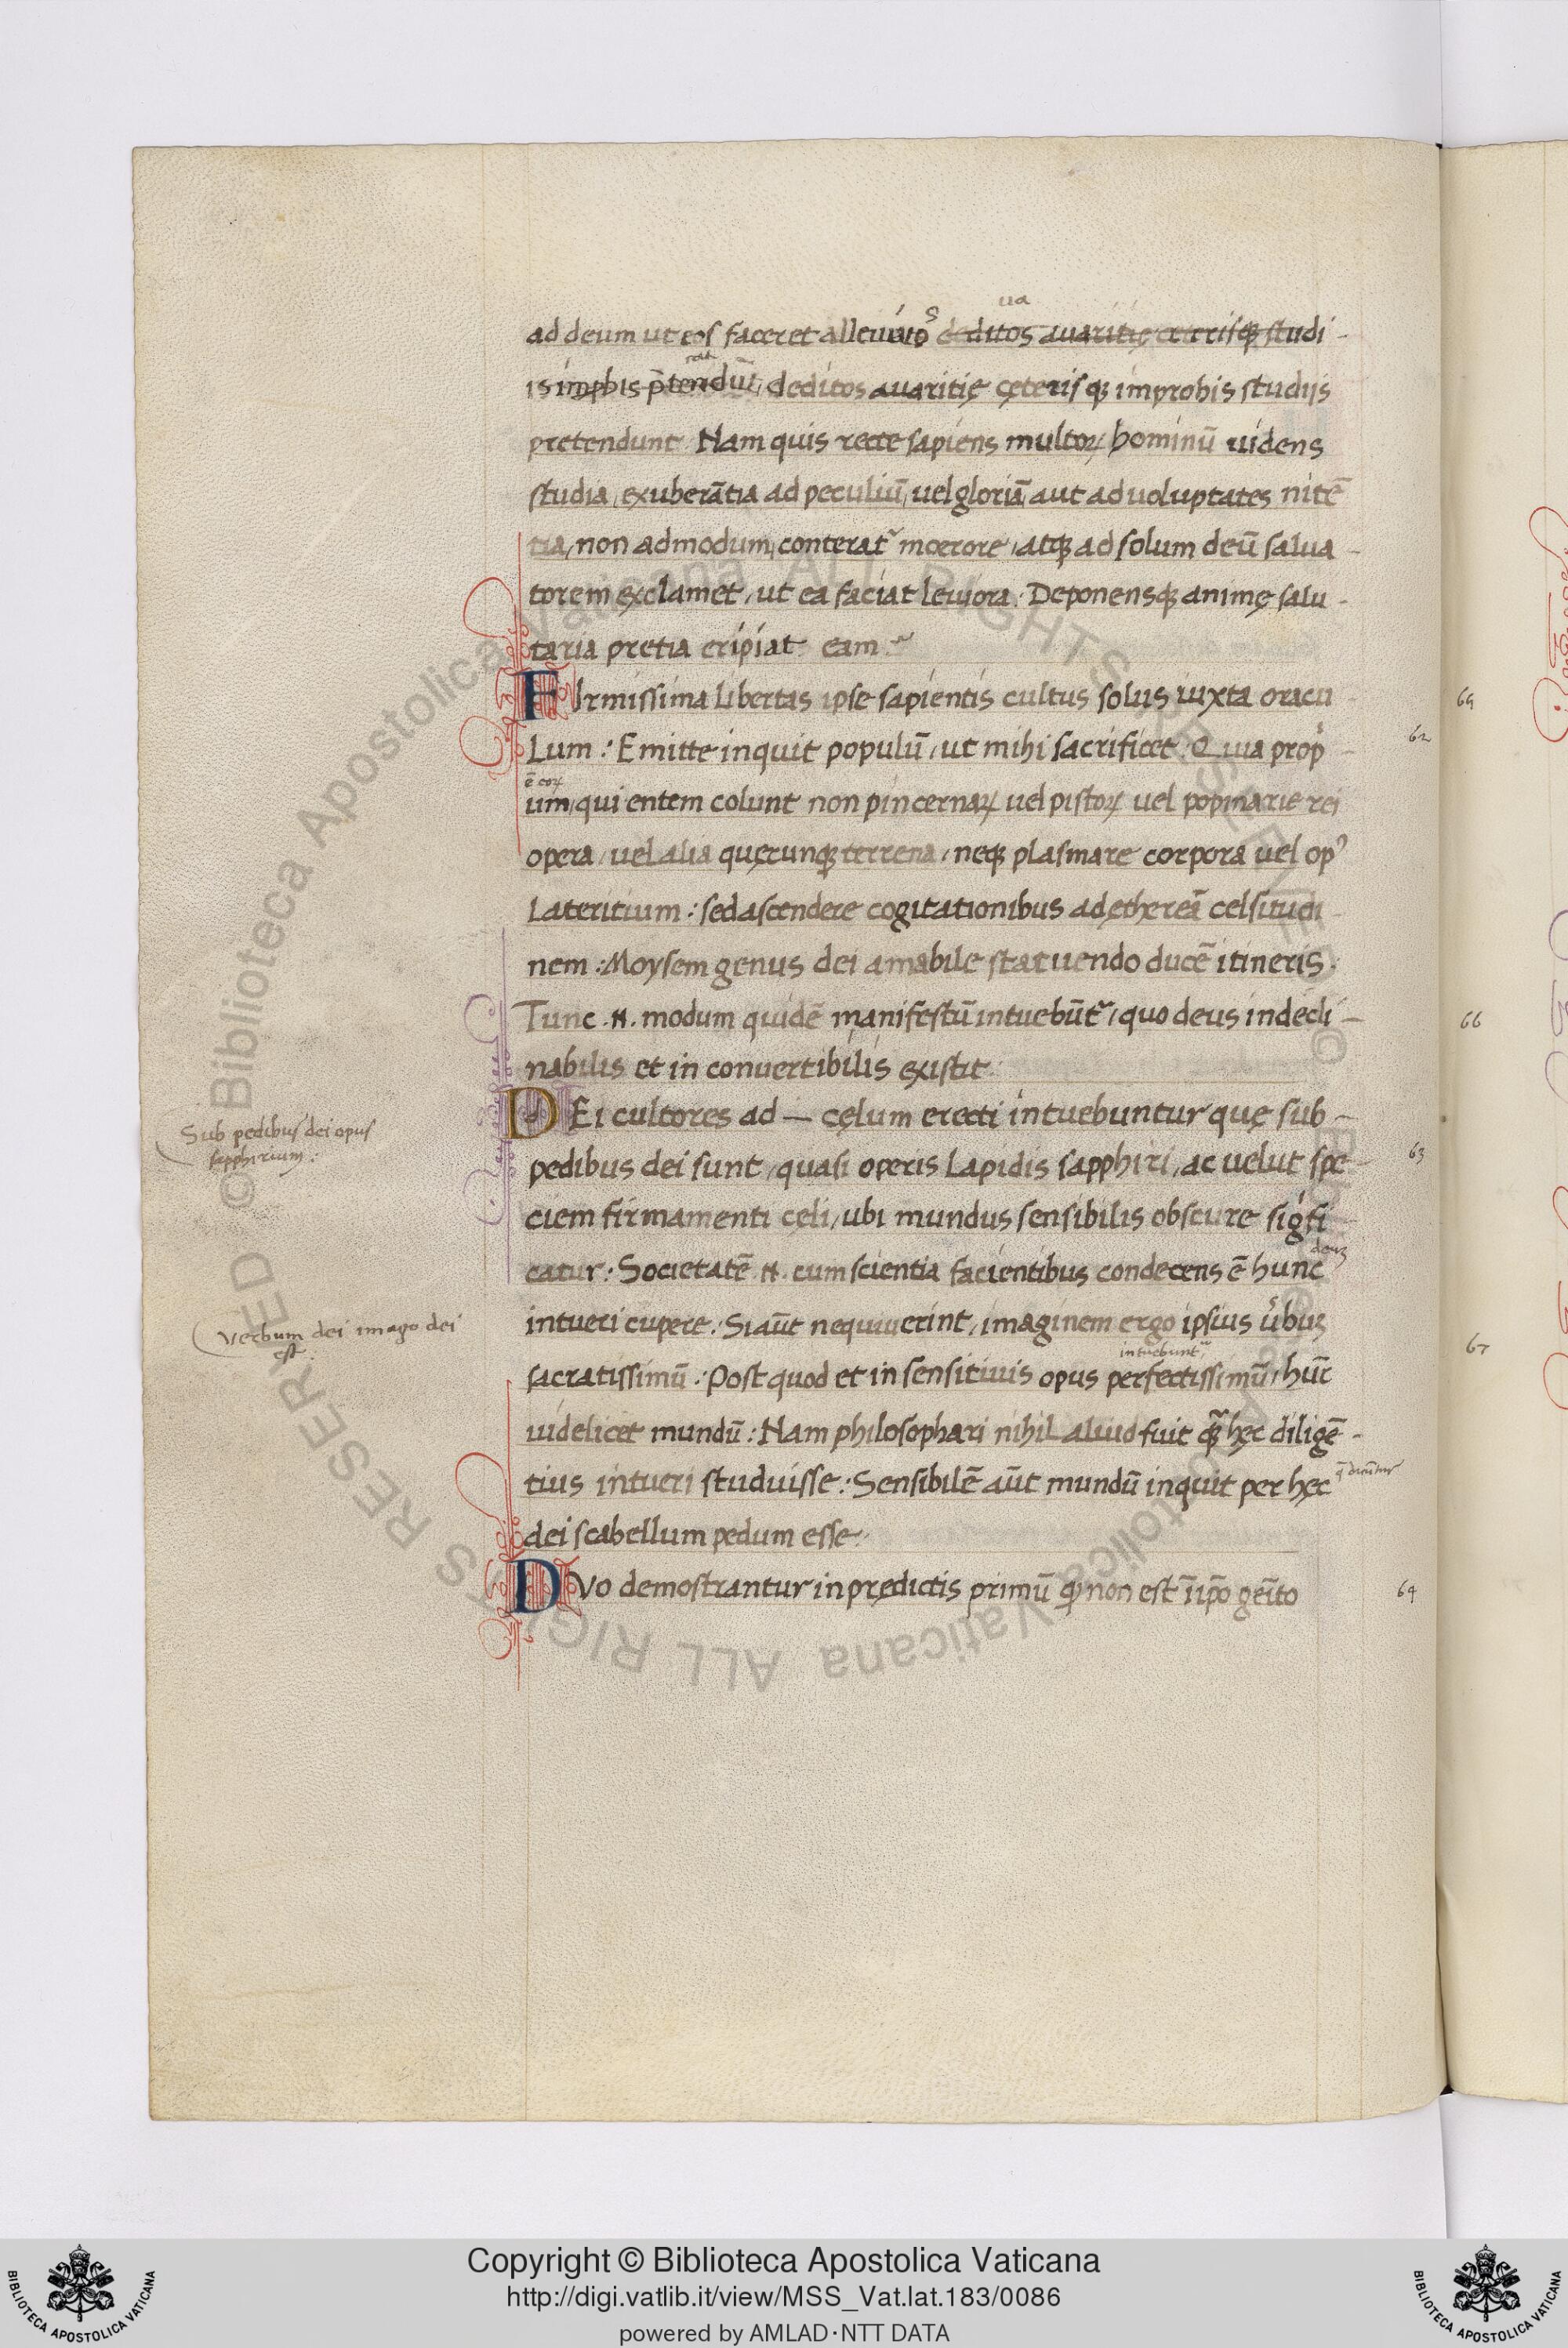 ua
ad deum ut eos faceret alleuatos deditos auaritię ceterisq; studi-
is imꝓbis p̄tendūt, deditos auaritię ceteris q; improbis studijs
pretendunt Nam quis recte sapiens multoꝝ hominū uidens
studia, exuberātia ad peculiū, uel gloriā aut ad uoluptates nitē
tia, non admodum conterat᷑ moerore, atq; ad solum deū salua-
torem exclamet, ut ea faciat leuiora: Deponensq; animę salu-
taria pretia eripiat eam
FIrmissima libertas ipse sapientis cultus solus iuxta oracu
Lum: Emitte inquit populū, ut mihi sacrificet. Quia propͥ-
ē eoꝝ
um, qui entem colunt non pincernaꝝ uel pistoꝝ uel popinarie rei
opera, uel alia quęcunq; terrena, neq; plasmare corpora uel opꝰ
Lateritium: sed ascendere cogitationibus ad ęthereā celsitudi
nem: Moysem genus dei amabile statuendo ducē itineris:
Tunc .N. modum quidē manifestū intuebūt᷑, quo deus indecli-
nabilis et in conuertibilis existit
DEi cultores ad — cęlum erecti intuebuntur quę sub-
pedibus dei sunt, quasi operis Lapidis sapphiri, ac uelut spe-
ciem firmamenti cęli, ubi mundus sensibilis obscure sigͥfi
deuʒ
catur: Societatē .N. cum scientia facientibus condecens ē hunc
intueri cupere: Si aūt nequiuerint, imaginem ergo ipsius u᷑buʒ
intuebunt᷑
sacratissimū: Post quod et in sensitiuis opus perfectissimū, hūc
uidelicet mundū: Nam philosophari nihil aliud fuit q᷑ hęc diligē-
tius intueri studuisse: Sensibilē aūt mundū inquit per hęc q̄ dicūtur
dei scabellum pedum esse:
DVo demostrantur in prędictis primū ꝙ non est ī ip̄o geīto
Sub pedibus dei opus
sapphirium:
Verbum dei imago dei
est:
62
63
64
66
67
Copyright © Biblioteca Apostolica Vaticana
http://digi.vatlib.it/view/MSS_Vat.lat.183/0086
powered by AMLAD·NTT DATA
BIBLIOTECA APOSTOLICA VATICANA
BIBLIOTECA APOSTOLICA VATICANA